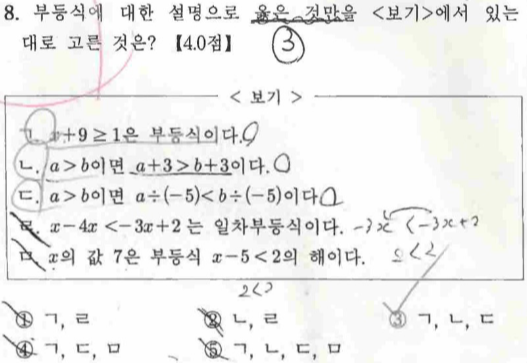 8. 부등식에 대한 설명으로 옳은 것만을 <보기>에서 있는
대로 고른 것은? 【4.0점】 ③
< 보기 >
ㄱ. x+9≥1은 부등식이다. O
ㄴ. a>b이면 a+3>b+3이다. O
ㄷ. a>b이면 a÷(-5)<b÷(-5)이다 O
ㄹ. x-4x<-3x+2 는 일차부등식이다. -3x<-3x+2
ㅁ. x의 값 7은 부등식 x-5<2의 해이다. 0<2
2<2
① ㄱ, ㄹ ② ㄴ, ㄹ ③ ㄱ, ㄴ, ㄷ
④ ㄱ, ㄷ, ㅁ ⑤ ㄱ, ㄴ, ㄷ, ㅁ